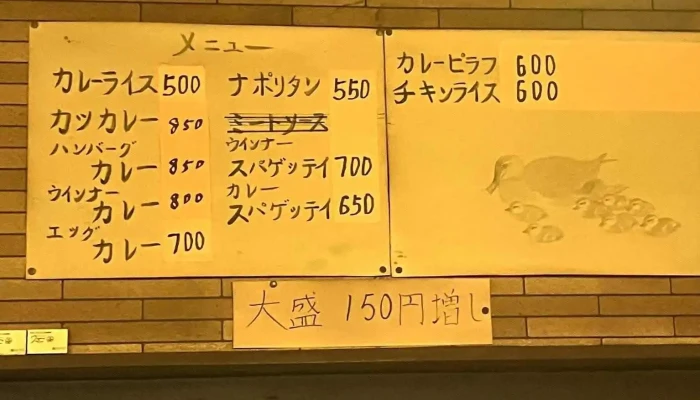 メニュー
カレーライス 500
カツカレー 850
ハンバーグ
カレー 850
ウインナー
カレー 800
エッグ
カレー 700
ナポリタン 550
ミートソース
ウインナー
スパゲッテイ 700
カレー
スパゲッテイ 650
カレーピラフ 600
チキンライス 600
大盛 150円増し